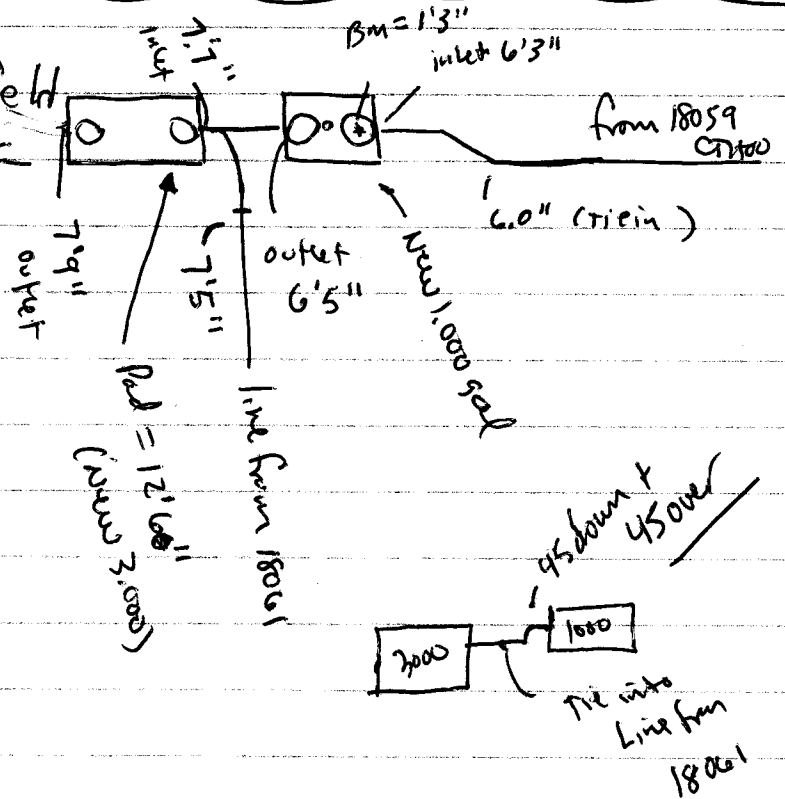 BM = 1'3"
inlet 6'3"
7.7"
inlet
from 18059
6.0" (tie in)
7'9"
outlet
7'5"
outlet
6'5"
New 1,000 gal
Pad = 12'6"
(New 3,000)
line from 18061
45 down +
45 over
3000
1000
Tie into
Line from
18061